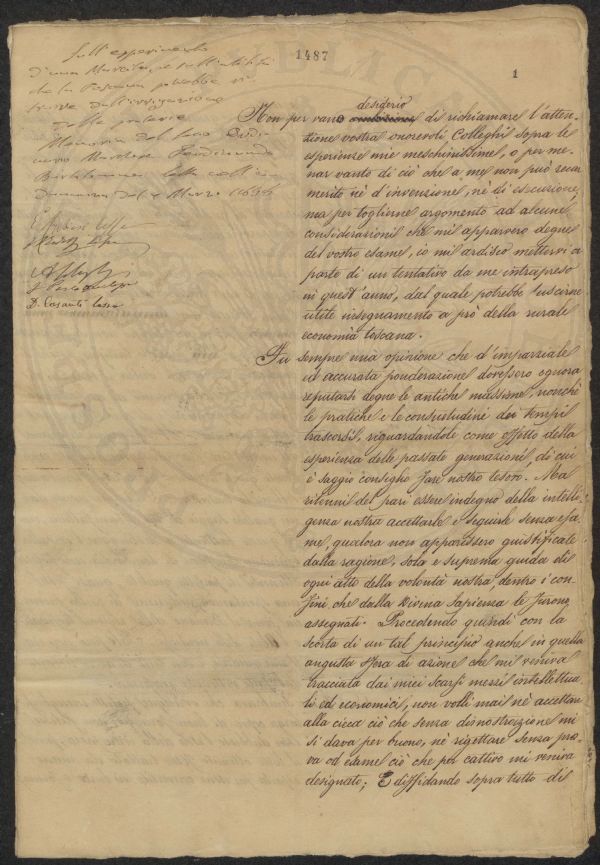 1487
1
Sull'esperimento
d'una Marcita, e sull'utilità
che la Toscana potrebbe ri
trarre dall'irrigazione
delle praterie
Memoria del Socio Ordi
nario Marchese Ferdinando
Bartolommei letta nell'
Adunanza del 4 Marzo
D. Casanti
desiderio
Non per vano di richiamare l'atten-
zione vostra onorevoli Colleghi sopra le
esperienze mie meschinissime, o per me-
nar vanto di ciò che a me non può recar
merito nè d'invenzione, nè di esecuzione,
ma per toglierne argomento ad alcune
considerazioni che mi apparvero degne
del vostro esame, io mi ardisco mettervi a
parte di un tentativo da me intrapreso
in quest'anno, dal quale potrebbe suscirne
utile insegnamento a prò della rurale
economia toscana.
Fu sempre mia opinione che d'imparziale
ed accurata ponderazione dovessero ognora
reputarsi degne le antiche massime, nonchè
le pratiche e le consuetudini dei tempi
trascorsi, riguardandole come effetto della
esperienza delle passate generazioni, di cui
è saggio consiglio fare nostro tesoro. Ma
ritenni del pari essere indegno della intelli-
genza nostra accettarle e seguirle senza esa-
me, qualora non apparissero giustificate
dalla ragione, sola e suprema guida di
ogni atto della volontà nostra, dentro i con-
fini che dalla Divina Sapienza le furono
assegnati. Procedendo quindi con la
scorta di un tal principio anche in quella
angusta sfera di azione che mi veniva
tracciata dai miei scarsi mezzi intellettua-
li ed economici, non volli mai nè accettare
alla cieca ciò che senza dimostrazione mi
si dava per buono, nè rigettare senza pro-
va od esame ciò che per cattivo mi veniva
designato; E diffidando sopra tutto di